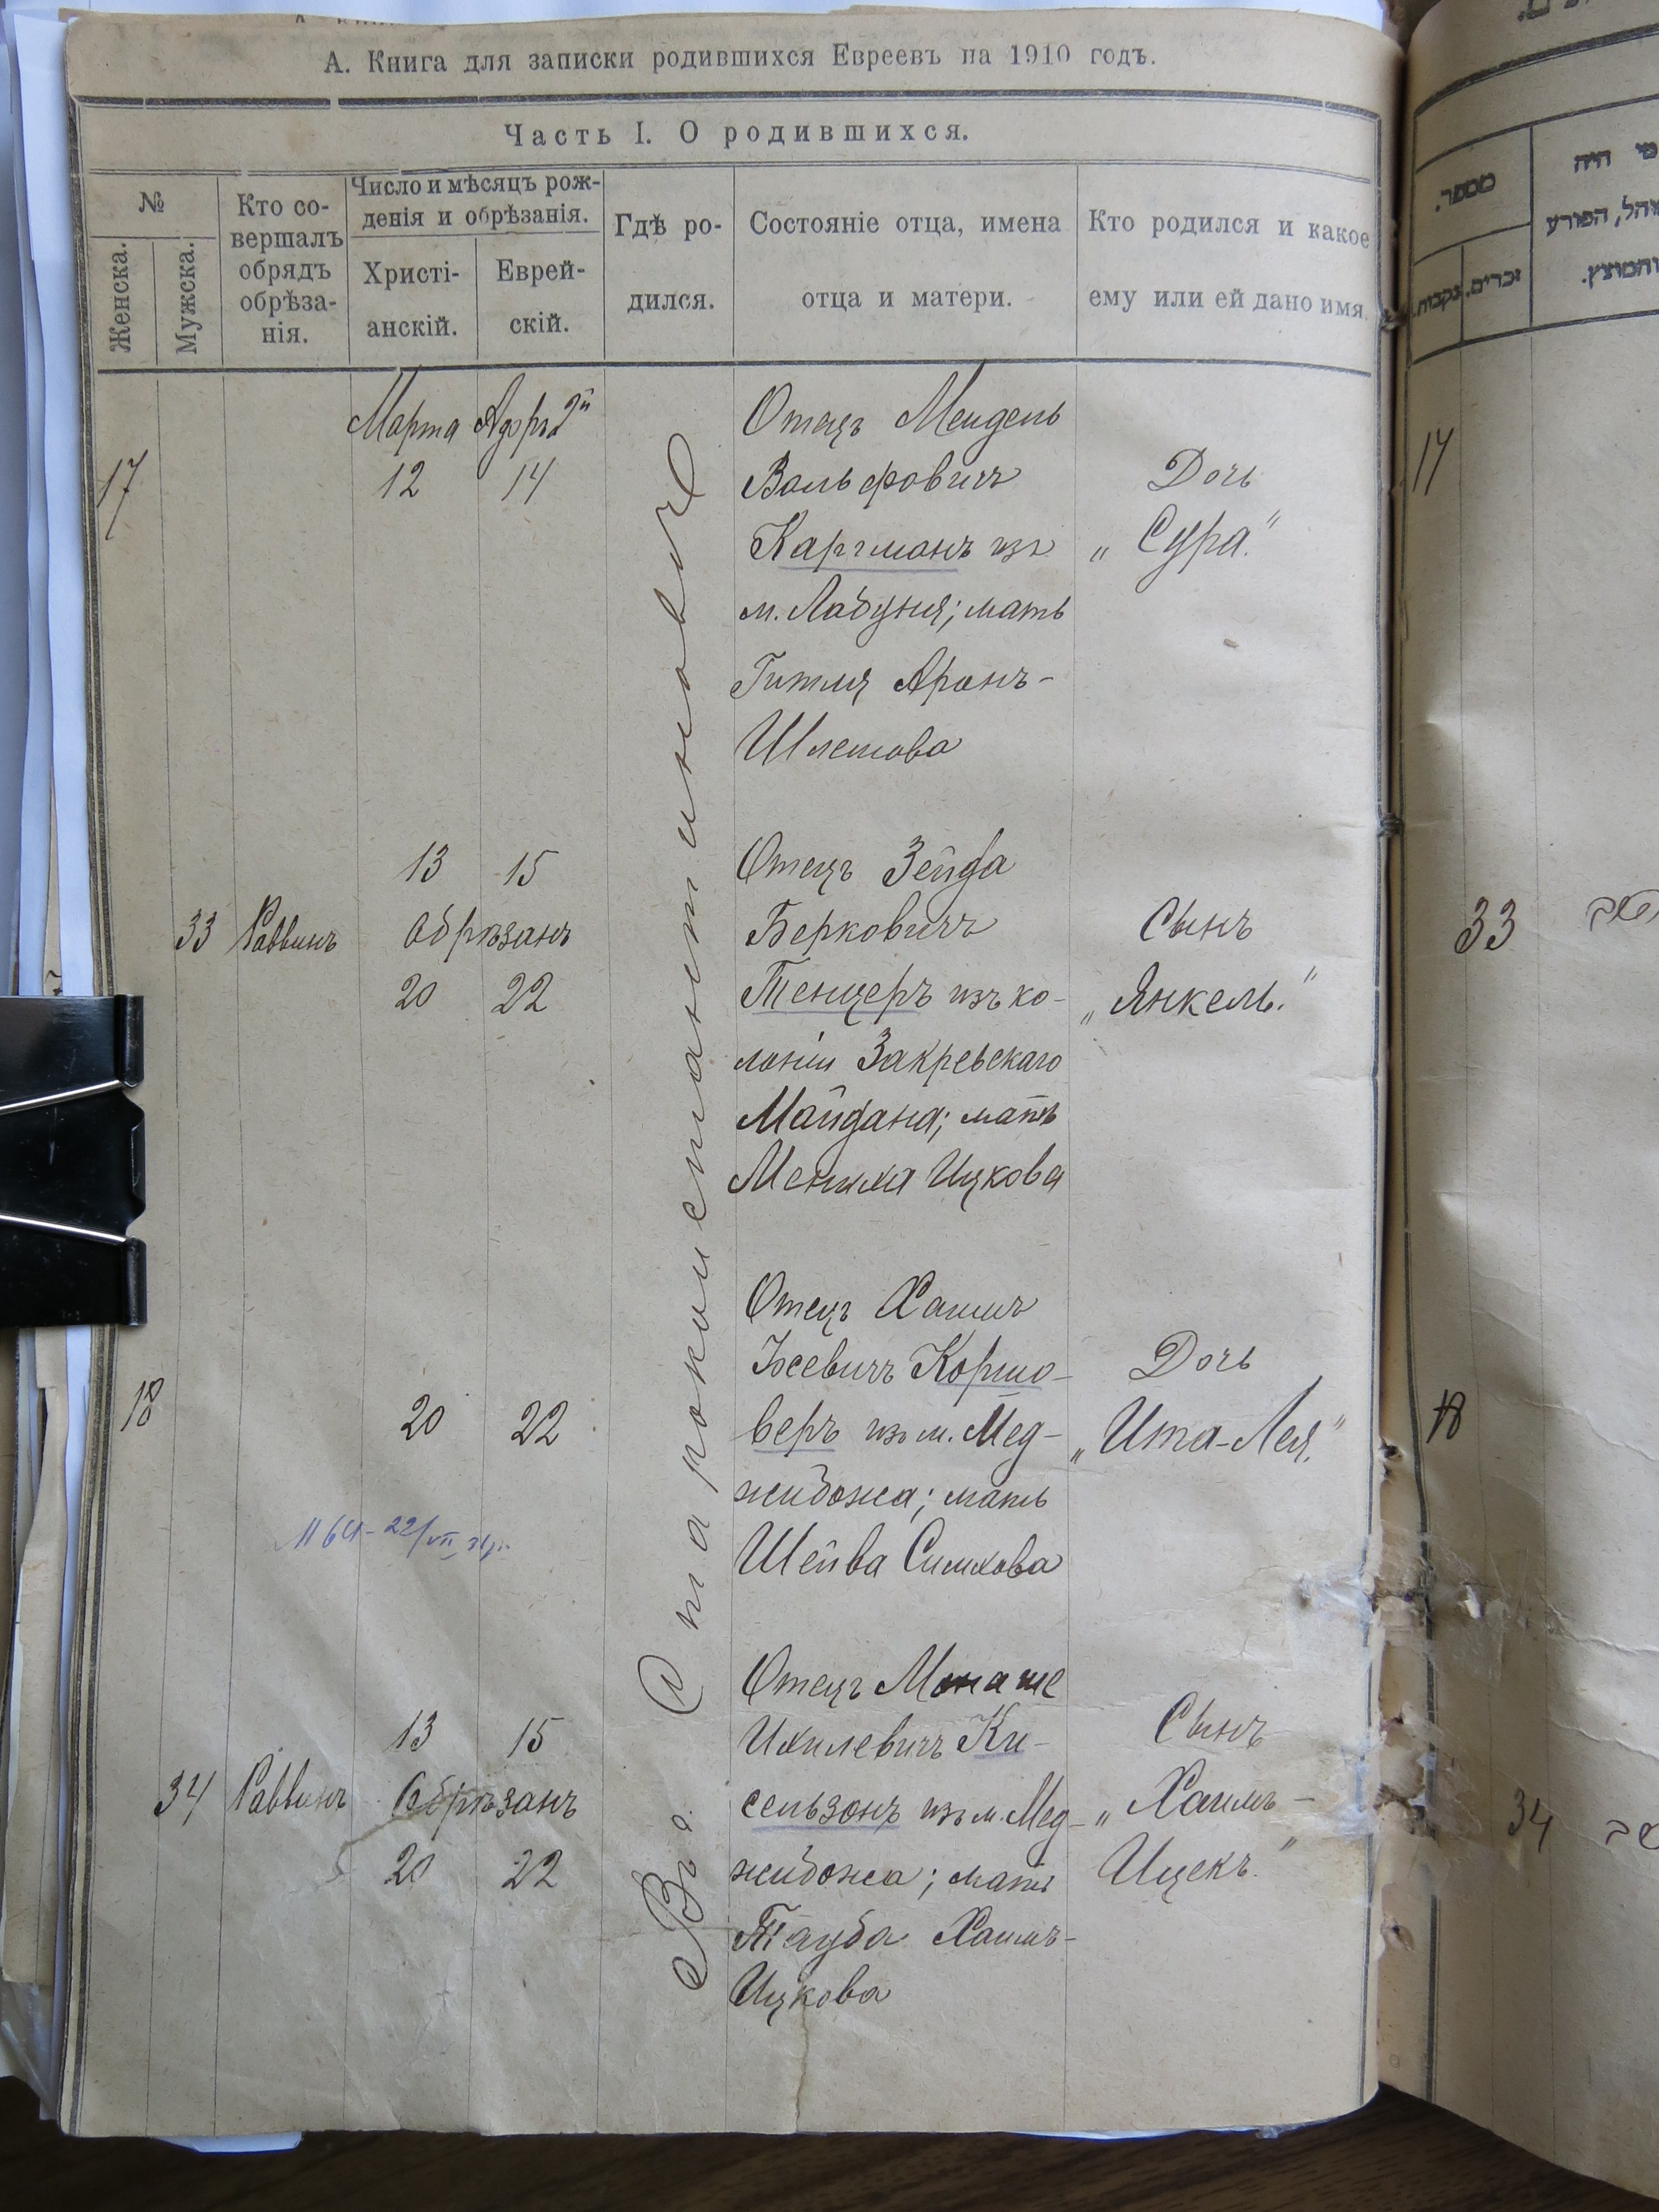 А. Книга для записки родившихся Евреевъ на 1910 годъ.
Часть I. О родившихся.
№
Женска.
Мужска.
Кто со-
вершалъ
обрядъ
обрѣза-
нія.
Число и мѣсяцъ рож-
денія и обрѣзанія.
Христі-
анскій.
Еврей-
скій.
Гдѣ ро-
дился.
Состояніе отца, имена
отца и матери.
Кто родился и какое
ему или ей дано имя.
Въ г. Староконстантиновѣ
17
Марта Адоръ 2й
12 14
Отецъ Мендель
Вольфовичъ
Каргманъ изъ
м. Лабуня; мать
Гитля Аронъ-
Шлемова
Дочь
„Сура."
33 Раввинъ
13 15
Обрѣзанъ
20 22
Отецъ Зейда
Берковичъ
Тенцеръ изъ ко-
лоніи Закревскаго
Майдана; мать
Менихля Ицкова
Сынъ
„Янкель."
18
20 22
Отецъ Хаимъ
Іосевичъ Коршо-
веръ изъ м. Мед-
жибожа; мать
Шейва Симхова
Дочь
„Ита-Лея."
34 Раввинъ
13 15
Обрѣзанъ
20 22
Отецъ Монаше
Ихилевичъ Ки-
сельзонъ изъ м. Мед-
жибожа; мать
Тауба Хаимъ-
Ицкова
Сынъ
„Хаимъ-
Ицекъ."
מספר.
נקבות.
זכרים.
מי היה
והמוצץ.
17
33
18
34